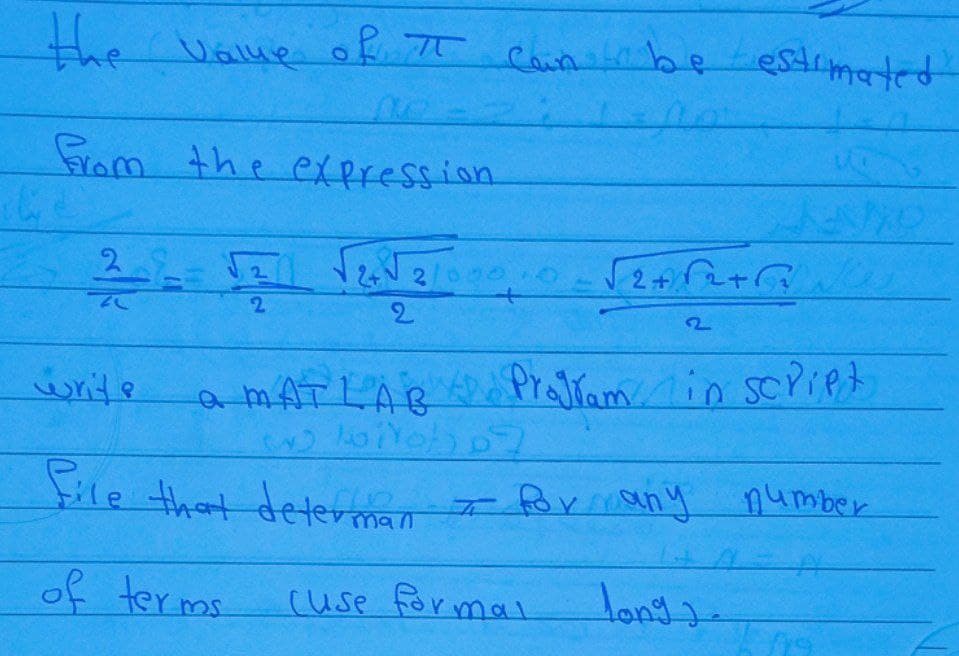 the value of π can be estimated
from the expression
2/π = √2/2 √(2+√2)/2 + √(2+√(2+√2))/2
write a MATLAB Program in script
file that determan π for any number
of terms (use formal long).